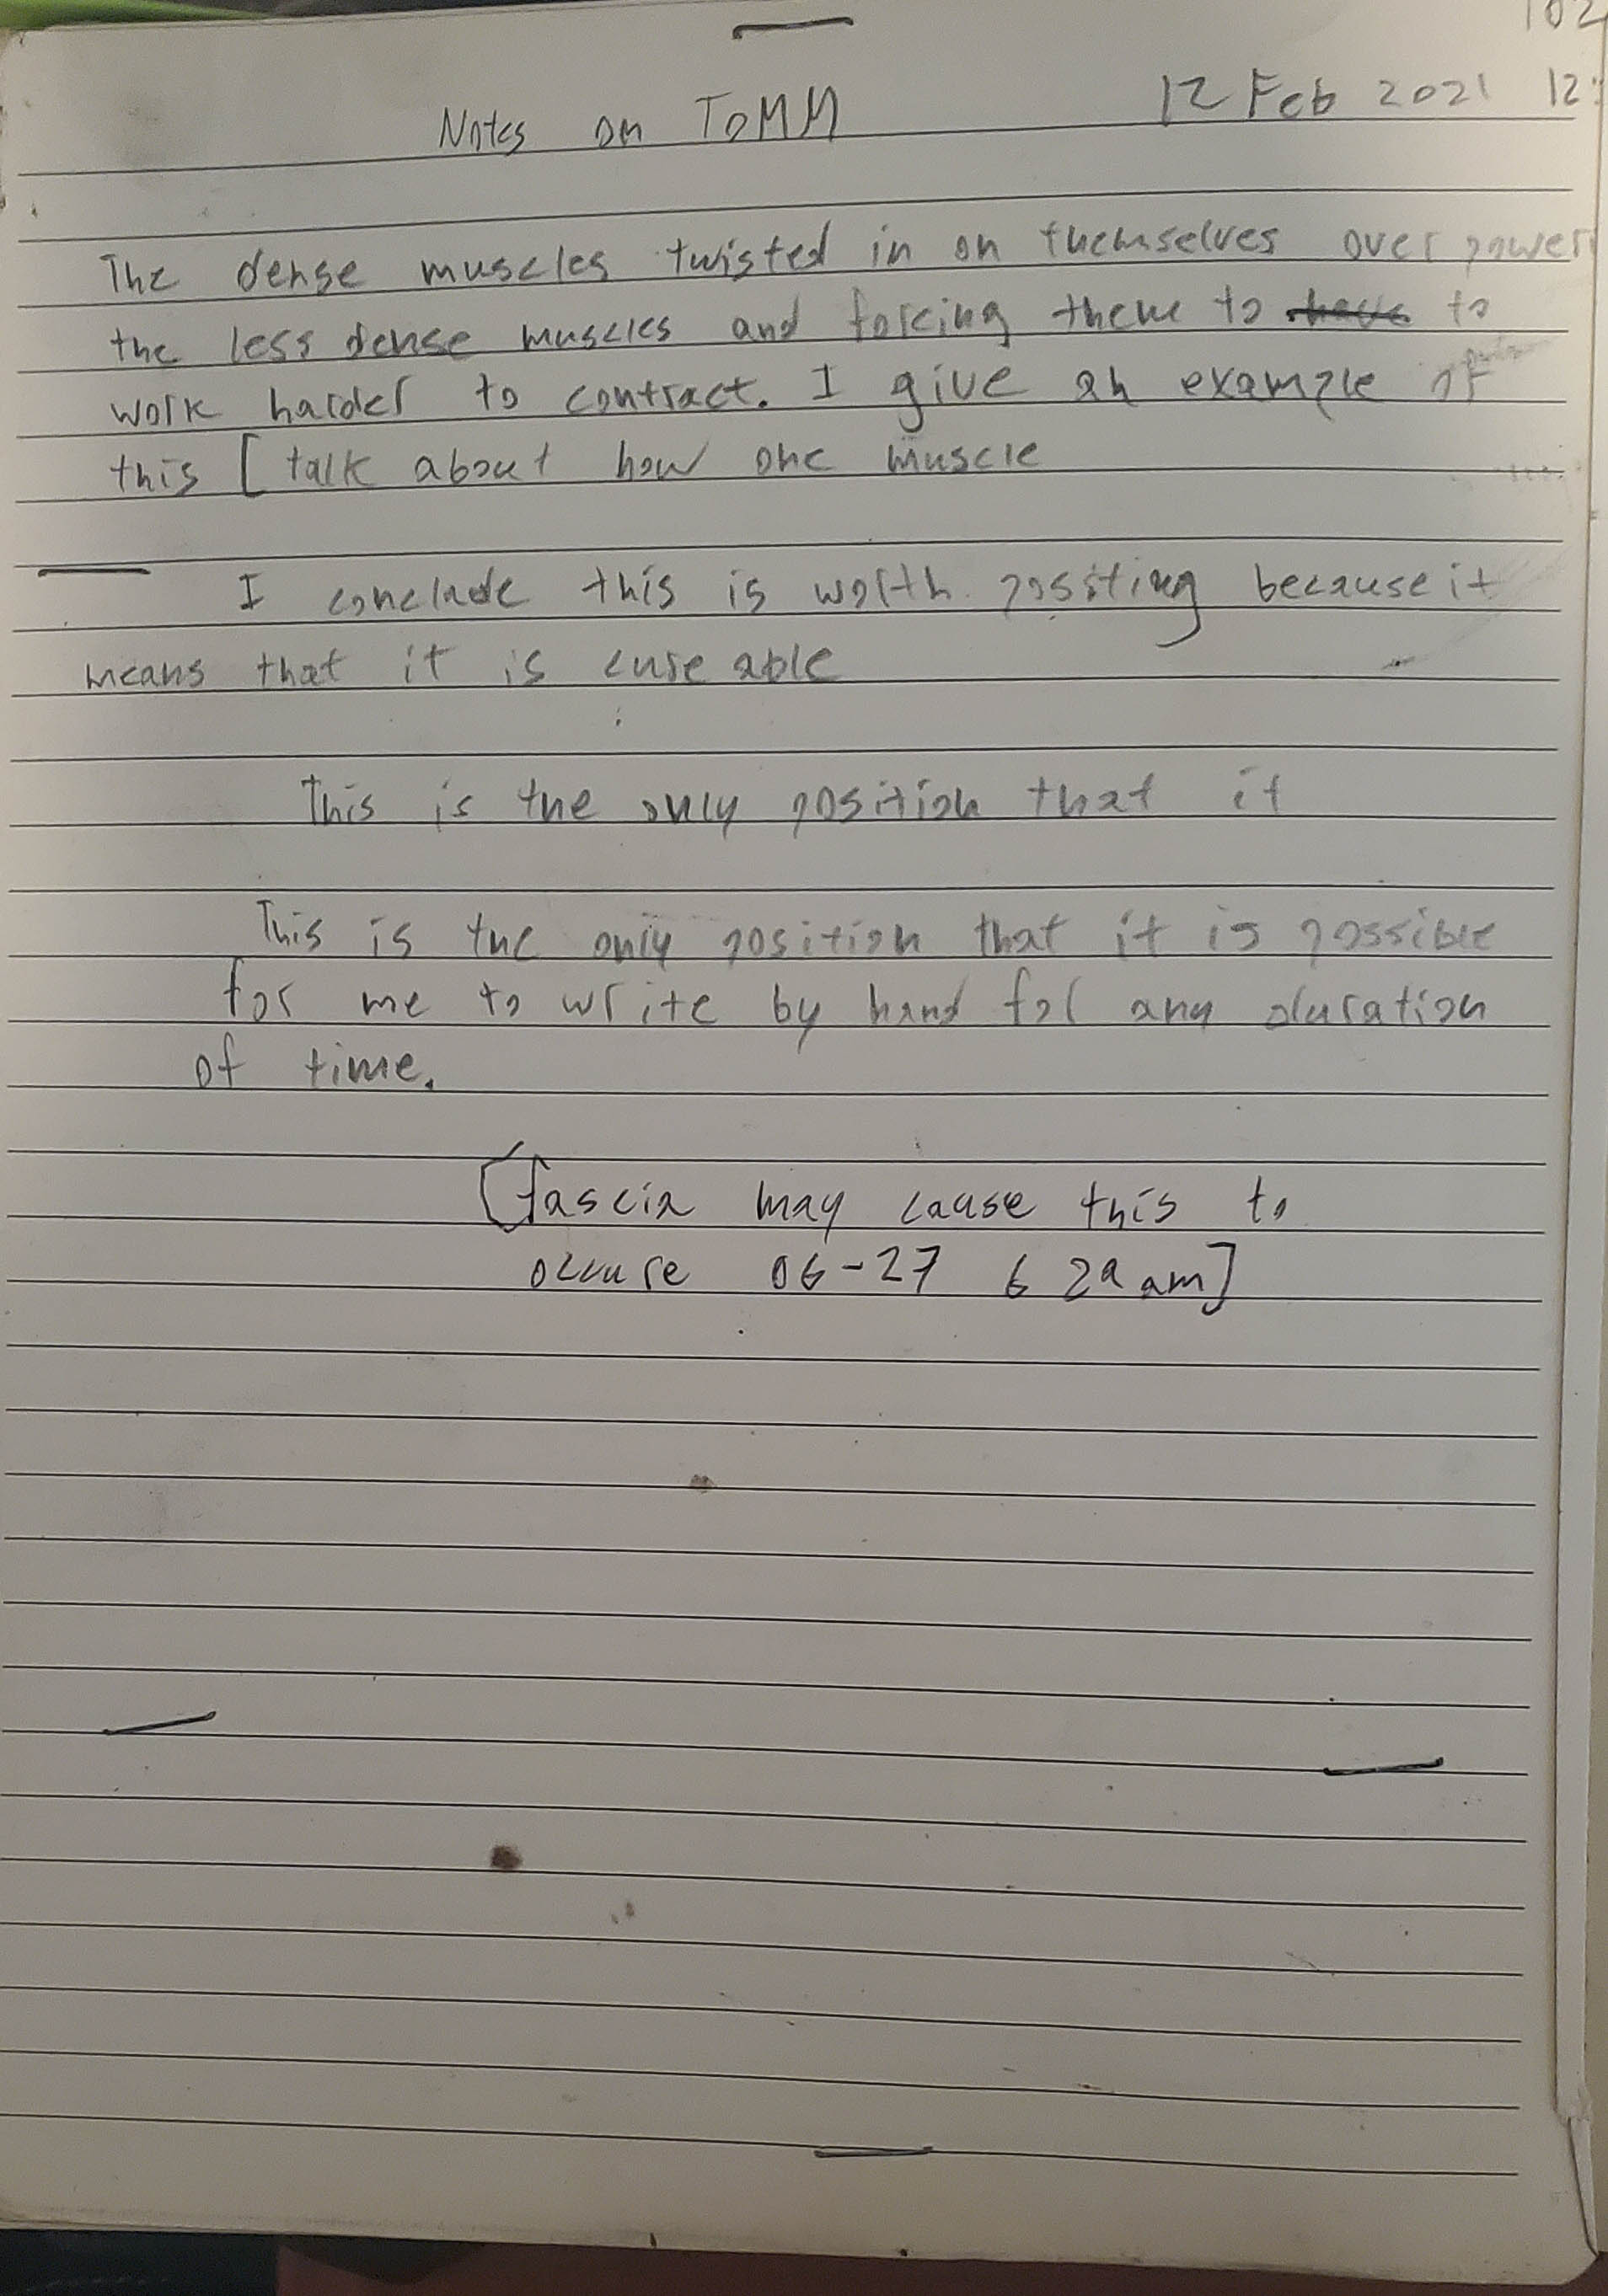 102
Notes on ToMM 12 Feb 2021 12:
The dense muscles twisted in on themselves over power
the less dense muscles and forcing them to have to
work harder to contract. I give an example of
this [ talk about how one muscle
I conclude this is worth possting because it
means that it is cure able
This is the only position that it
This is the only position that it is possible
for me to write by hand for any duration
of time.
[fascia may cause this to
occure 06-27 6 29 am]